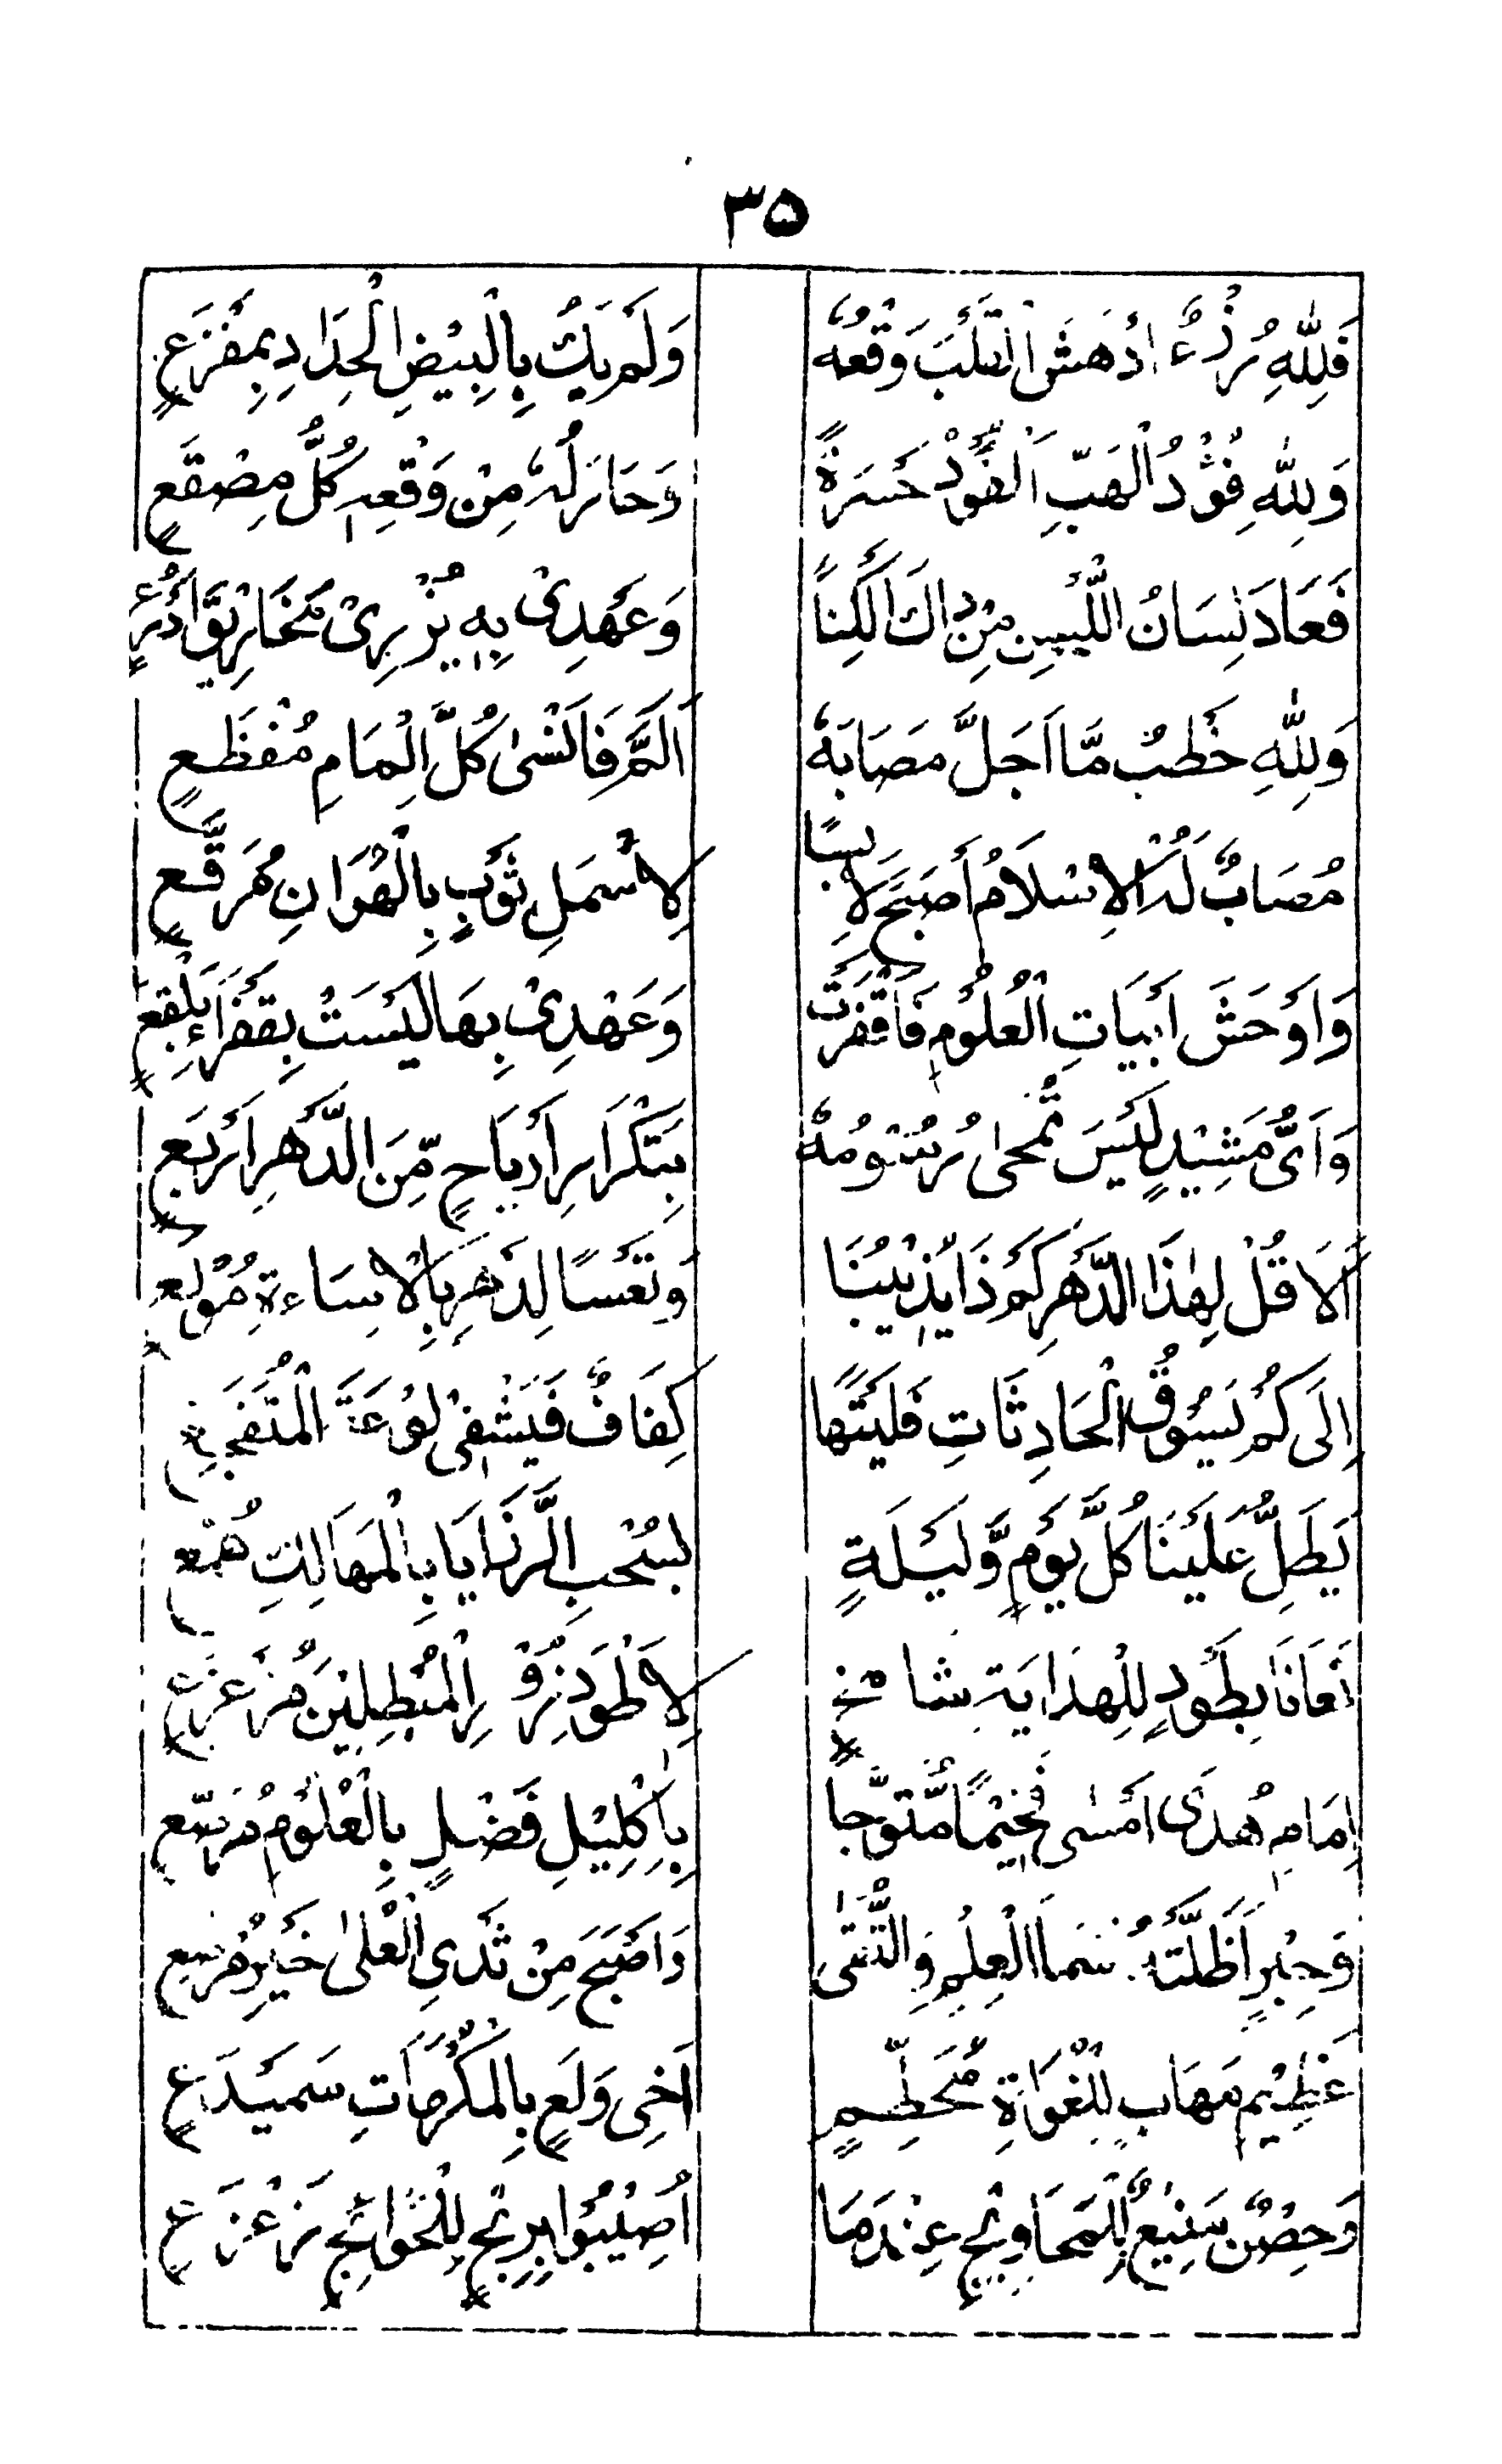 ۳۵
فَلِلّٰهِ رُزْءٌ أَدْهَشَ الْقَلْبَ وَقْعُهٗ وَلَمْ يَكُ بِالْبِيْضِ الْحِدَادِ بِمُفْزَعٍ
وَلِلّٰهِ فَقْدٌ أَلْهَبَ الْفَوْدَ حَسْرَةً وَحَازَلَهٗ مِنْ وَقْعِهٖ كُلُّ مِصْقَعٍ
فَعَادَ لِسَانُ اللَّسِنِ مِنْ ذَاكَ أَلْكَنًا وَعَهْدِىْ بِهٖ يُزْرِىْ مَخَارِيْقَ أَدْرُعٍ
وَلِلّٰهِ خَطْبٌ مَّا اَجَلَّ مَصَابَهٗ اَلَمَّ فَاَنْسٰى كُلَّ اِلْمَامِ مُفْظَعٍ
مُصَابٌ لَهُ الْاِسْلَامُ أَصْبَحَ لَابِسًا لِاَسْمَلِ ثَوْبٍ بِالْهَوَانِ مُرَقَّعٍ
وَاَوْحَشَ أَبْيَاتِ الْعُلُوْمِ فَاَقْفَرَتْ وَعَهْدِىْ بِهَا لَيْسَتْ بِقَفْرَاءَ بَلْقَعٍ
وَاَىُّ مَشِيْدٍ لَيْسَ تُمْحٰى رُسُوْمُهٗ بِتَكْرَارِ أَرْيَاحٍ مِّنَ الدَّهْرِ اَرْبَعٍ
أَلَا قُلْ لِهٰذَا الدَّهْرِ كَمْ ذَا يُذِيْبُنَا وَتَعْسًا لِدَهْرٍ بِالْاِسَاءَةِ مُوْلَعٍ
اِلَى كَمْ يَسُوْقُ الْحَادِثَاتِ فَلَيْتَهَا كِفَافٌ فَيُشْفٰى لَوْعَةَ الْمُتَفَجِّعِ
يُطِلُّ عَلَيْنَا كُلَّ يَوْمٍ وَّلَيْلَةٍ بِسُحْبِ الرَّزَايَا بِالْمَهَالِكِ هُمَّعٍ
نَعَانَا بِطَوْدٍ لِلْهِدَايَةِ شَامِخٍ لِاَطْوَدِ زُوْرِ الْمُبْطِلِيْنَ مُزَعْزِعٍ
اِمَامِ هُدًى اَمْسٰى فَخِيْمًا مُّتَوَّجًا بِاِكْلِيْلِ فَضْلٍ بِالْعُلُوْمِ مُرَصَّعٍ
وَحِبْرٍ اَظَلَّتْهُ سَمَا الْعِلْمِ وَالتُّقٰى وَاَصْبَحَ مِنْ ثَدْيِ الْعُلٰى خَيْرَ مُرْضَعٍ
عَظِيْمٍ مَهَابٍ لِلْغُوَاةِ مُحَطِّمٍ اَخِى وَلَعٍ بِالْمَكْرُمَاتِ سَمَيْدَعٍ
وَحِصْنٌ مَنِيْعٌ لِلْمَحَاوِيْجِ عِنْدَمَا اُصِيْبُوْا بِرِيْحٍ لِلْحَوَائِجِ زَعْزَعٍ